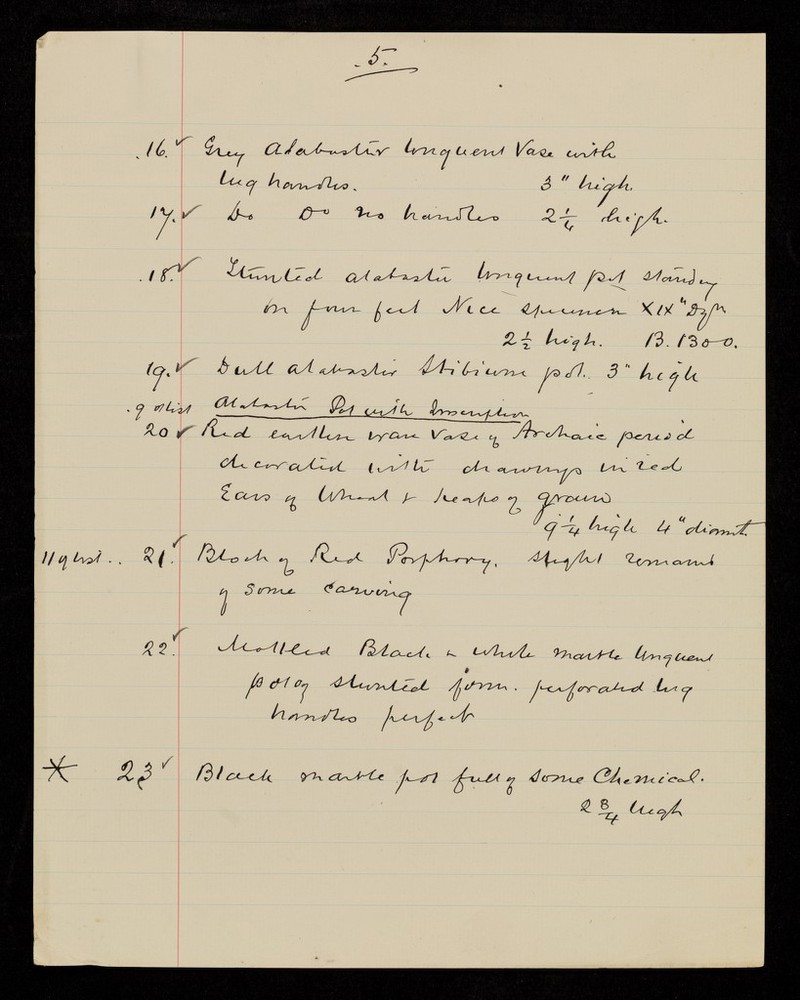 .5.
.16. ✓ Grey Alabaster Unguent Vase with
lug handles. 3" high.
17. ✓ Do Do no handles 2 1/4 high.
.18. ✓ Stunted alabaster Unguent pot standing
on four feet Nice specimen XIX" Dyn
2 1/2 high. B. 1300.
19. ✓ Dull alabaster Stibium pot. 3" high
.9 of list Alabaster Pot with Inscription
20 ✓ Red earthen ware Vase of Archaic period
decorated with drawings in red
Ears of Wheat & heaps of grain
9 1/4 high 4" diamt.
11 of list .. 21. ✓ Block of Red Porphory. slight remains
of some carving
22. ✓ Mottled Black & white marble Unguent
pot of stunted form. perforated lug
handles perfect
* 23 ✓ Black marble pot full of some Chemical.
2 3/4 high